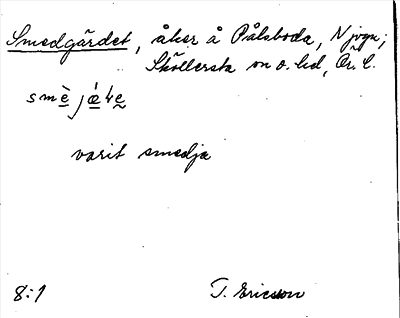 Smedgärdet, åker å Pålsboda, N jogn;
Sköllersta sn o. hd, Ör. l.
smè̱jǽ̱ɂe̱
varit smedja
8:1 T. Ericsson